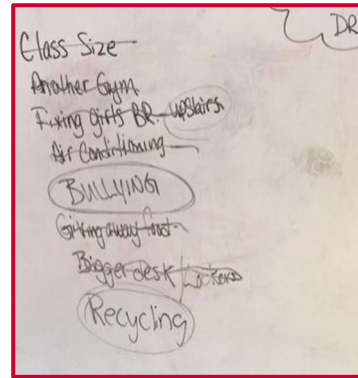 DR
Class Size
Another Gym
Fixing girls BR - upstairs
Air Conditioning
BULLYING
Giving away food
Bigger desk / Lockers
Recycling